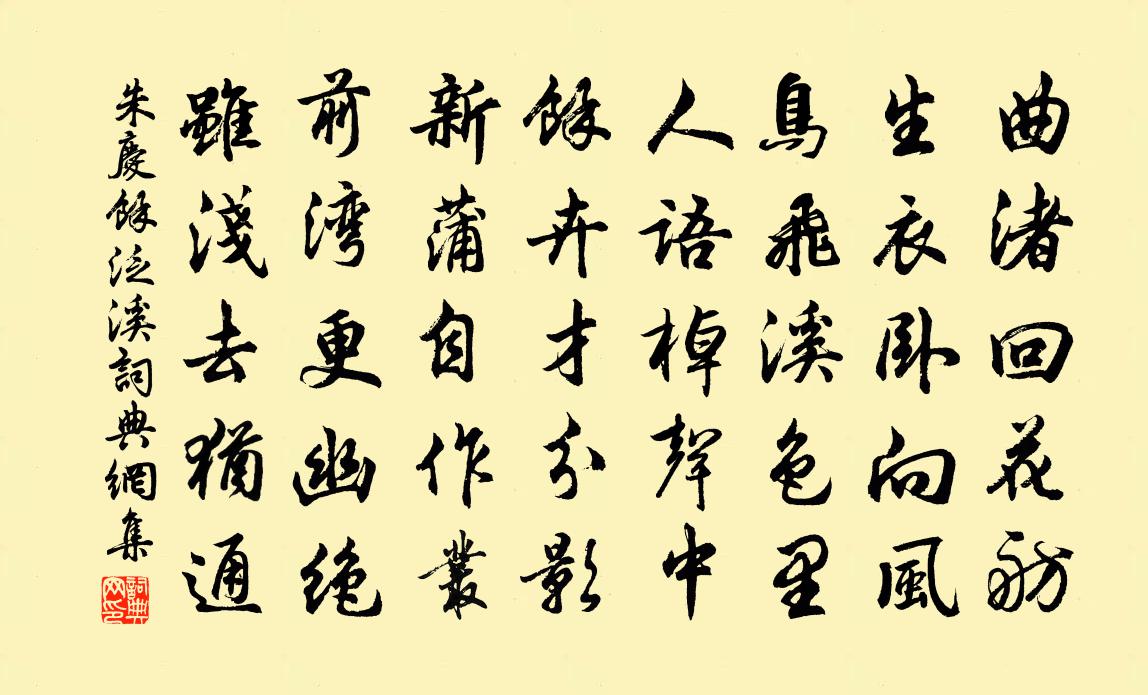 曲渚回花舫
生衣卧向風
鳥飛溪色里
人語棹聲中
餘卉才分影
新蒲自作叢
前湾更幽绝
雖淺去猶通
朱慶餘泛溪詞典網集
詞典网印